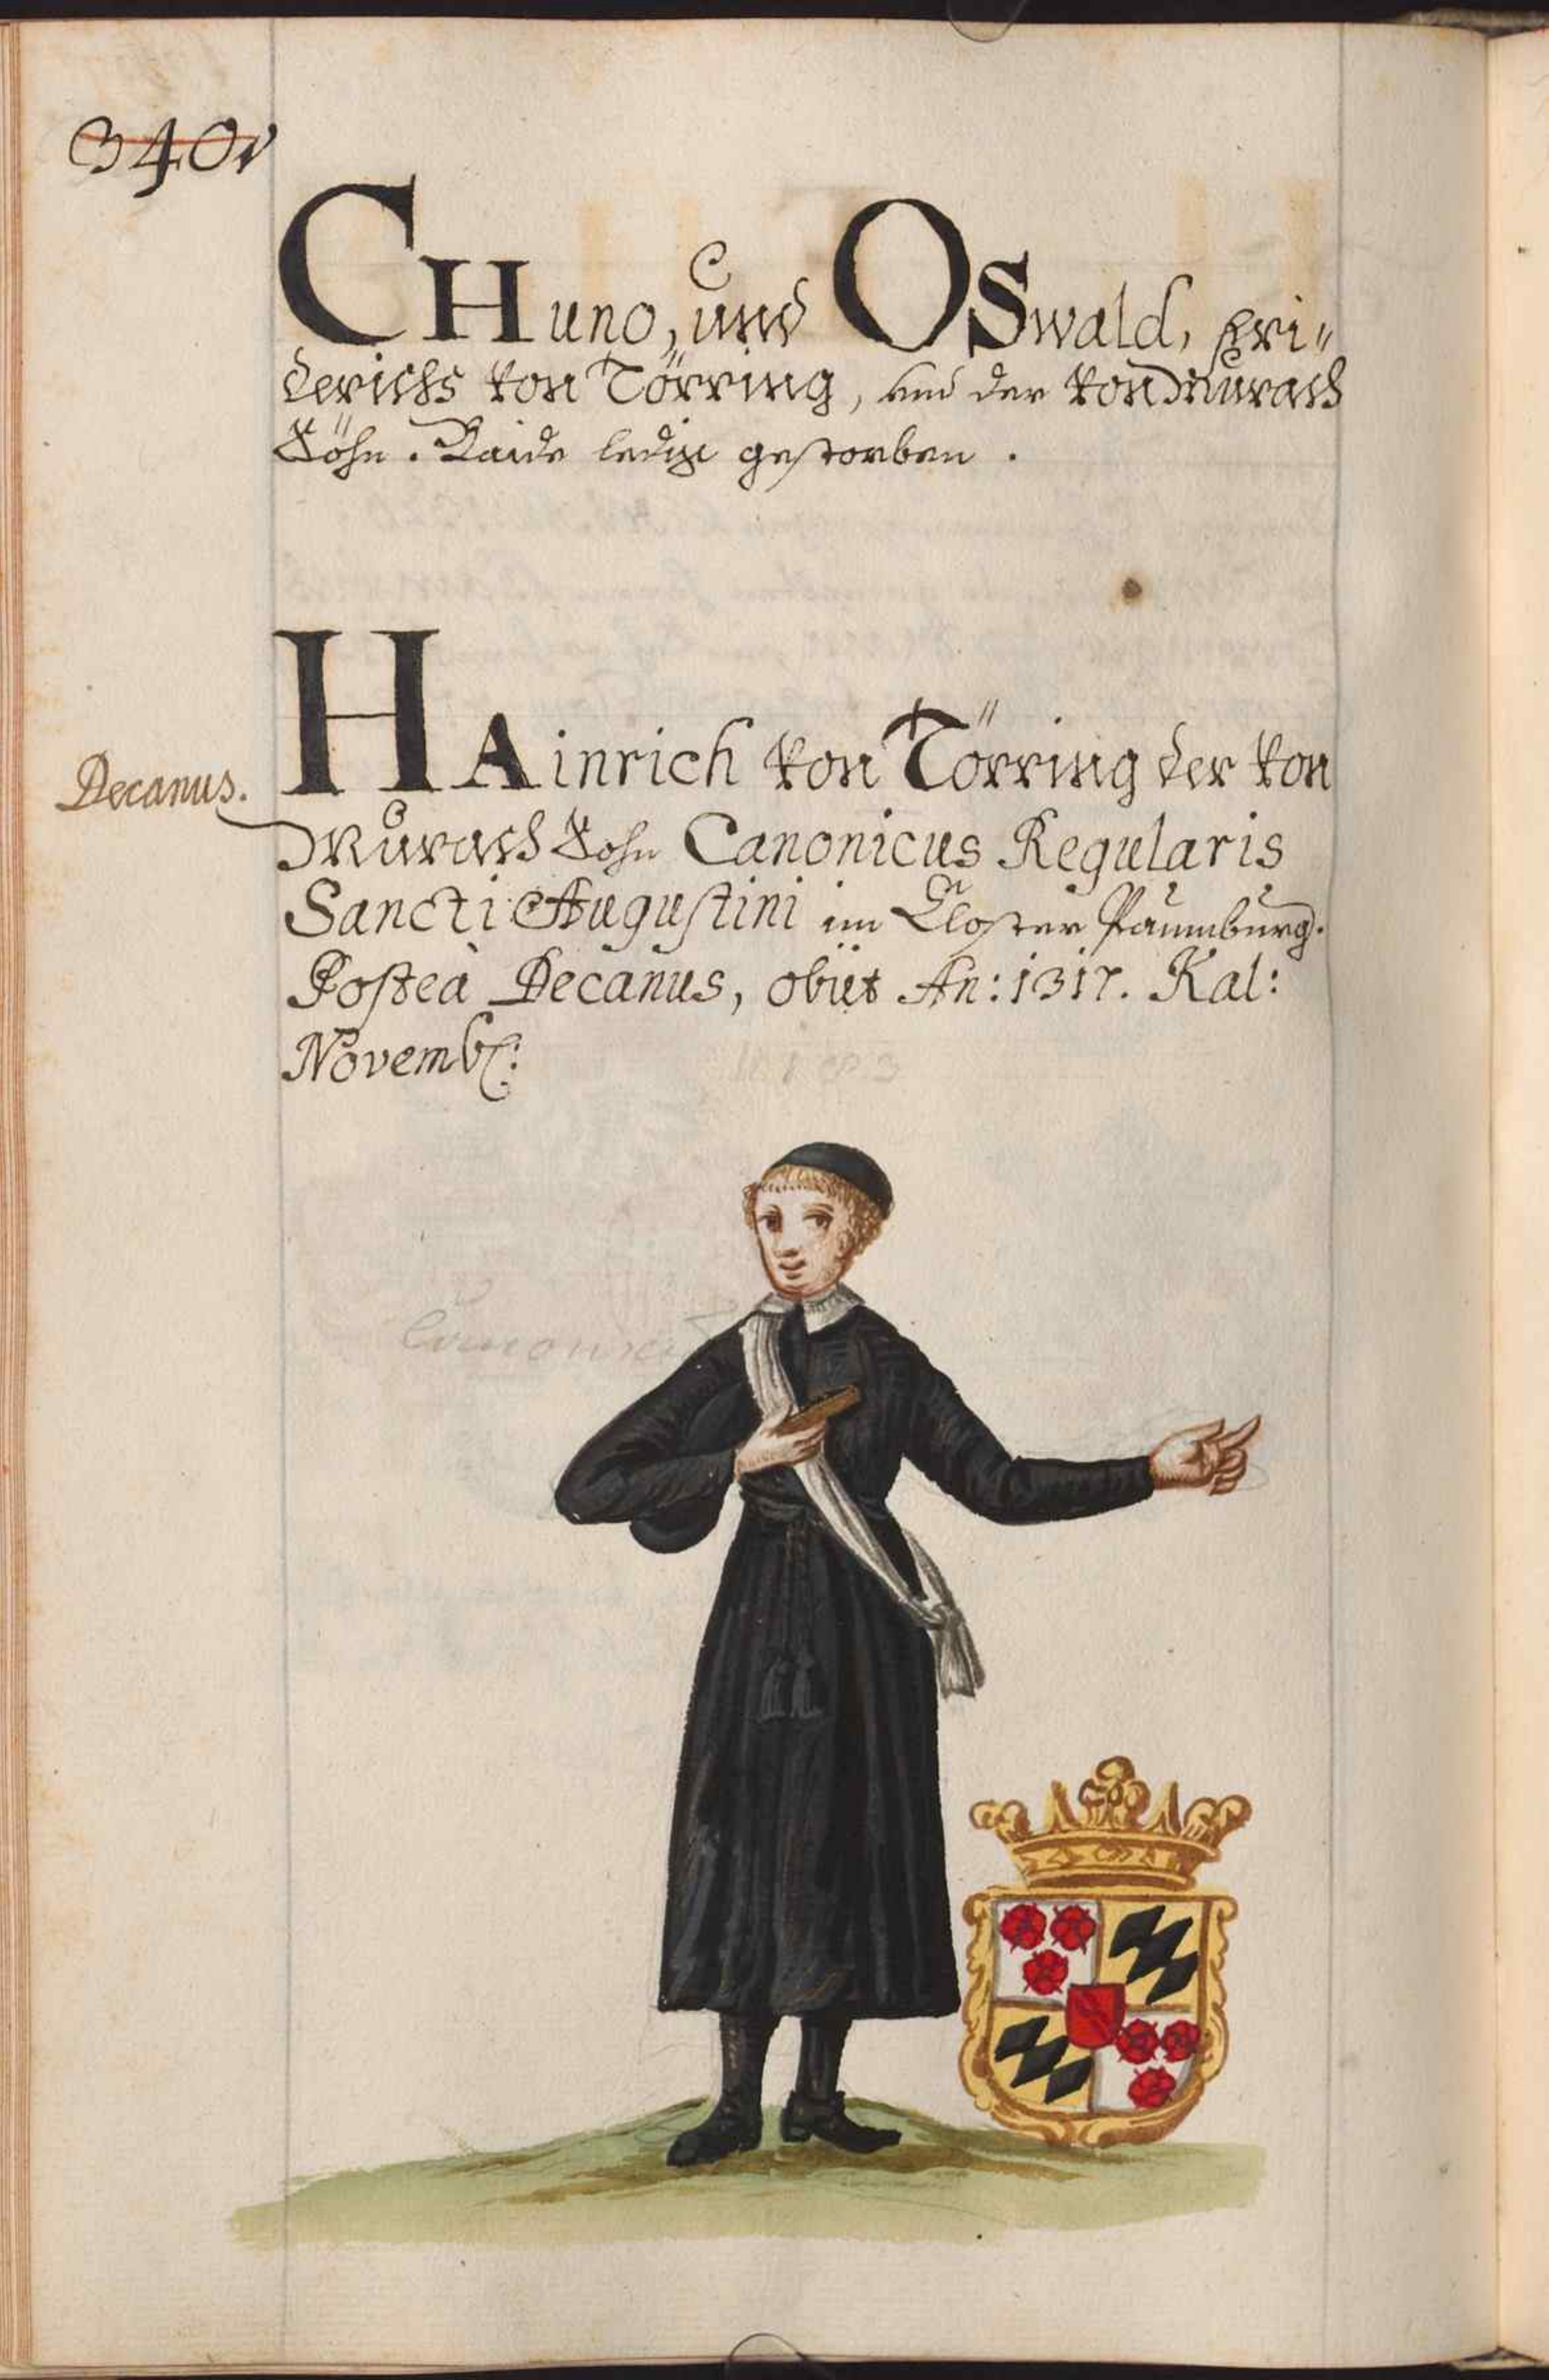 340v
CHuno, und OSwald, Fri„
derichs von Törring, und der von Murach
Söhn. Baide ledig gestorben.
Decanus.
HAinrich von Törring der von
Murach Sohn Canonicus Regularis
Sancti Augustini im Closter Paumburg.
Posteà Decanus, obiit An: 1317. Kal:
Novemb: